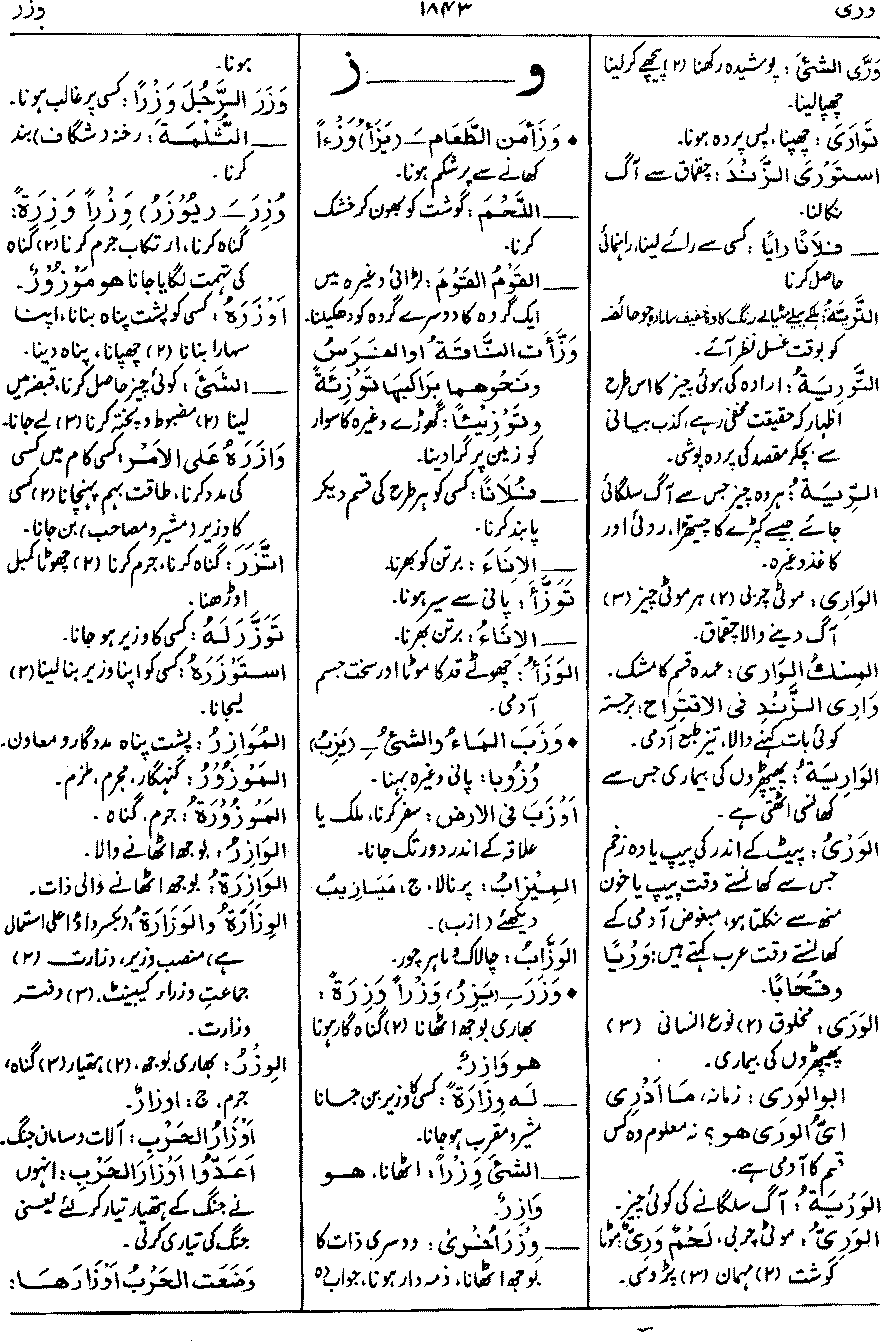 وری ۱۸۴۳ وزر
وَرَّی الشئَ : پوشیدہ رکھنا (۲) پیچھے کرلینا
چھپالینا۔
تَوَارَی : چھپنا، پس پردہ ہونا۔
استَوْرَی الزَّنْدَ : چقماق سے آگ
نکالنا۔
ــــ فلانًا رایًا : کسی سے رائے لینا، راہنمائی
حاصل کرنا
التَّرِیَّةُ : ہلکے پیلے مٹیالے رنگ کا وہ خفیف سا مادہ جو حائضہ
کو بوقت غسل نظر آئے۔
التَّورِیَةُ : ارادہ کی ہوئی چیز کا اس طرح
اظہار کہ حقیقت مخفی رہے، کذب بیانی
سے بچکر مقصد کی پردہ پوشی۔
الرِّیَةُ : ہر وہ چیز جس سے آگ سلگائی
جائے جیسے کپڑے کا چیتھڑا، روئی اور
کاغذ وغیرہ۔
الوَارِی : موٹی چربی (۲) ہر موٹی چیز (۳)
آگ دینے والا چقماق۔
المِسْكُ الوَارِی : عمدہ قسم کا مشک۔
وَارِی الزَّنْدِ فی الاقتِرَاحِ : برجستہ
کوئی بات کہنے والا، تیز طبع آدمی۔
الوَارِیَةُ : پھیپھڑوں کی بیماری جس سے
کھانسی اٹھتی ہے۔
الوَرْیُ : پیٹ کے اندر کی پیپ یا وہ زخم
جس سے کھانستے وقت پیپ یا خون
منھ سے نکلتا ہو، مبغوض آدمی کے
کھانستے وقت عرب کہتے ہیں: وَرْیًا
وقُحَابًا۔
الوَرَی : مخلوق (۲) نوع انسانی (۳)
پھیپھڑوں کی بیماری۔
ابو الوَرَی : زمانہ، مَا اَدْرِی
ایُّ الوَرَی ھو؟ نہ معلوم وہ کس
قسم کا آدمی ہے۔
الوَرْیَةُ : آگ سلگانے کی کوئی چیز۔
الوَرِیُّ : موٹی چربی، لَحْمٌ وَرِیٌّ موٹا
گوشت (۲) مہمان (۳) پڑوسی۔
و ــــ ز
• وَزَأَ من الطَّعَام ــ (یَزَأُ) وَزْءاً
کھانے سے پر شکم ہونا۔
ــــ اللَّحْمَ : گوشت کو بھون کر خشک
کرنا۔
ــــ القَوْمُ القَوْمَ : لڑائی وغیرہ میں
ایک گروہ کا دوسرے گروہ کو دھکیلنا۔
وَزَّأَت النَّاقَةُ او الفَرَسُ
ونَحْوھما بِرَاکبِھا تَوْزِئَةً
وتَوْزِیْئًا : گھوڑے وغیرہ کا سوار
کو زمین پر گرا دینا۔
ــــ فُلَانًا : کسی کو ہر طرح کی قسم دیکر
پابند کرنا۔
ــــ الاِنَاءَ : برتن کو بھرنا۔
تَوَزَّأَ : پانی سے سیر ہونا۔
ــــ الاِنَاءُ : برتن بھرنا۔
الوَزَأُ : چھوٹے قد کا موٹا اور سخت جسم
آدمی۔
• وَزَبَ المَاءُ والشئُ ــ (یَزِبُ)
وُزُوبا : پانی وغیرہ بہنا۔
اَوْزَبَ فی الارض : سفر کرنا، ملک یا
علاقہ کے اندر دور تک جانا۔
المِیْزَابُ : پرنالا، ج : مَیَازِیبُ
دیکھئے (ازب)۔
الوَزَّابُ : چالاک و ماہر چور۔
• وَزَرَ ــ (یَزِرُ) وَزْراً وَزِرَةً :
بھاری بوجھ اٹھانا (۲) گناہ گار ہونا
ھو وَازِرٌ۔
ــــ لَہ وِزَارَةً : کسی کا وزیر بن جانا
مشیر و مقرب ہوجانا۔
ــــ الشئَ وِزْراً : اٹھانا، ھو
وَازِرٌ۔
ــــ وِزْرَ اُخْرَیٰ : دوسری ذات کا
بوجھ اٹھانا، ذمہ دار ہونا، جواب دہ
ہونا۔
وَزَرَ الرَّجُلَ وَزْرًا : کسی پر غالب ہونا۔
ــــ الثُّلْمَةَ : رخنہ (شگاف) بند
کرنا۔
وُزِرَ ــ (یُوْزَرُ) وِزْراً وَزِرَةً :
گناہ کرنا، ارتکاب جرم کرنا (۲) گناہ
کی تہمت لگایا جانا ھو مَوْزُوْرٌ۔
اَوْزَرَہُ : کسی کو پشت پناہ بنانا، اپنا
سہارا بنانا (۲) چھپانا، پناہ دینا۔
ــــ الشئَ : کوئی چیز حاصل کرنا، قبضہ میں
لینا (۲) مضبوط و پختہ کرنا (۳) لے جانا۔
وَازَرَہُ علی الامرِ : کسی کام میں کسی
کی مدد کرنا، طاقت بہم پہنچانا (۲) کسی
کا وزیر (مشیر و مصاحب) بن جانا۔
اتَّزَرَ : گناہ کرنا، جرم کرنا (۲) چھوٹا کمبل
اوڑھنا۔
تَوَزَّرَ لَہُ : کسی کا وزیر ہوجانا۔
استَوْزَرَہُ : کسی کو اپنا وزیر بنا لینا (۲)
لیجانا۔
المُوَازِرُ : پشت پناہ مددگار و معاون۔
المَوْزُوْرُ : گنہگار، مجرم، ملزم۔
المَوْزُوْرَةُ : جرم، گناہ۔
الوَازِرُ : بوجھ اٹھانے والا۔
الوَازِرَةُ : بوجھ اٹھانے والی ذات۔
الوِزَارَةُ والوَزَارَةُ : (بکسر واؤ اعلی استعمال
ہے) منصب وزیر، وزارت (۲)
جماعتِ وزراء کیبینٹ، (۳) دفتر
وزارت۔
الوِزْرُ : بھاری بوجھ، (۲) ہتھیار (۳) گناہ،
جرم، ج : اوزارٌ۔
اَوْزَارُ الحَرْبِ : آلات و سامان جنگ۔
اَعَدُّوا اَوْزَارَ الحَرْبِ : انہوں
نے جنگ کے ہتھیار تیار کرلئے یعنی
جنگ کی تیاری کرلی۔
وَضَعَت الحَرْبُ اَوْزَارَھَا :